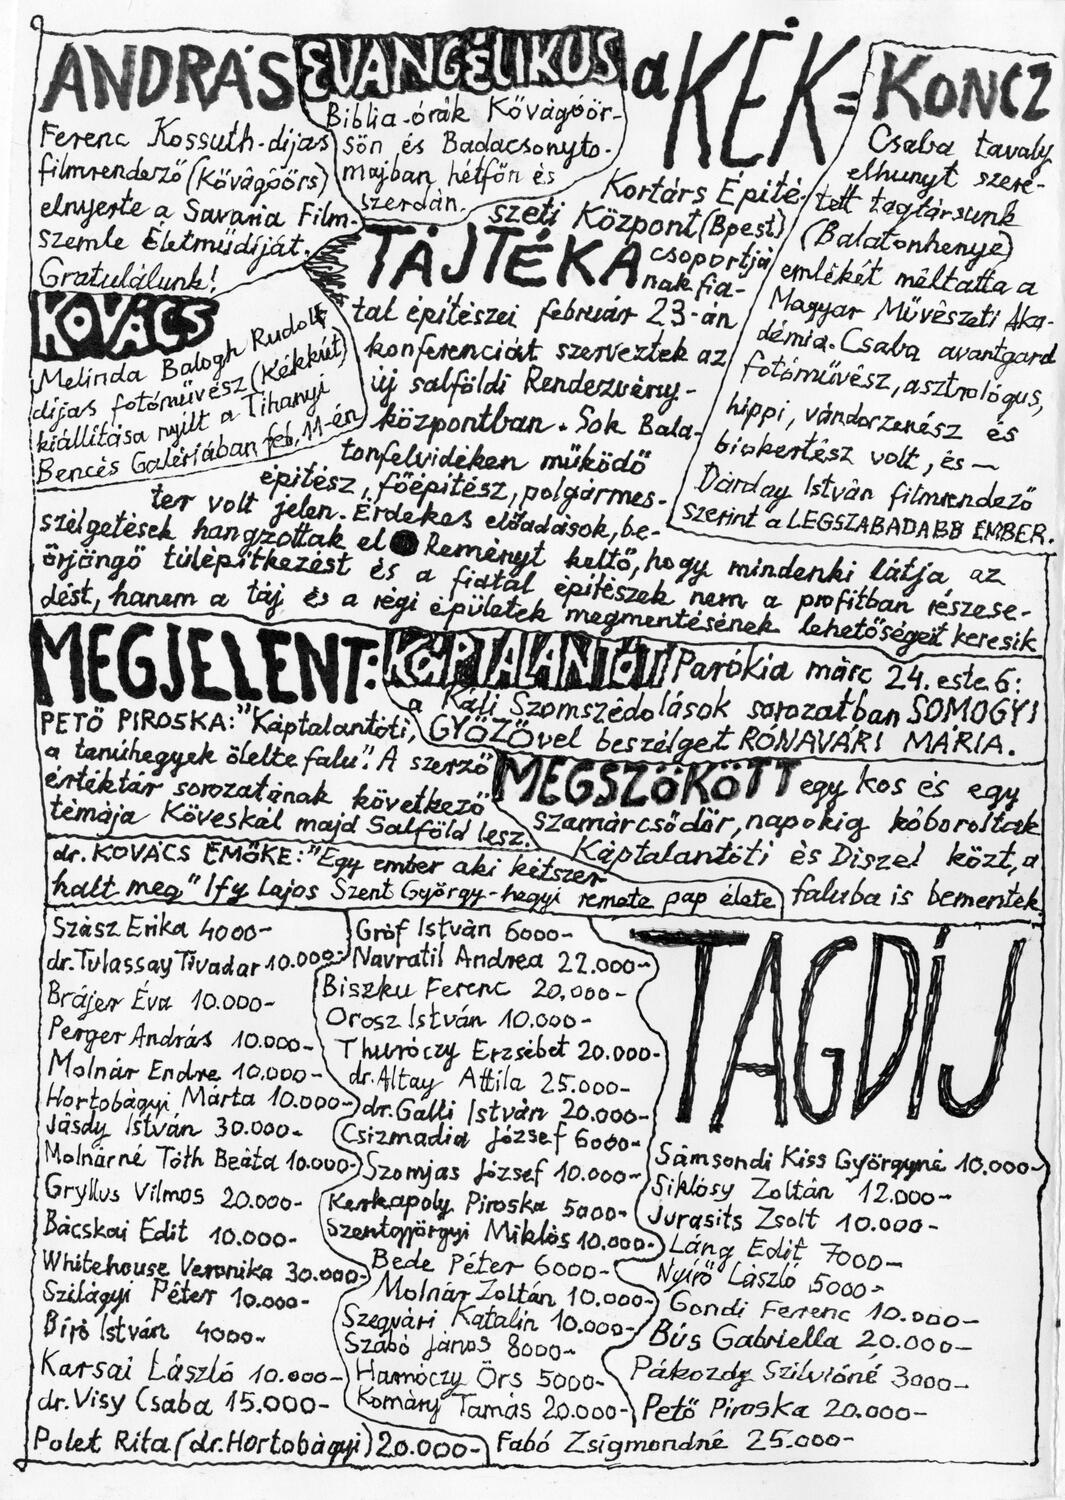 ANDRÁS
Ferenc Kossuth-díjas
filmrendező (Kővágóőrs)
elnyerte a Savaria Film-
szemle Életműdíját.
Gratulálunk!
EVANGÉLIKUS
Biblia-órák Kővágóör-
sön és Badacsonyto-
majban hétfőn és
szerdán.
a KÉK=
Kortárs Építé-
szeti Központ (Bpest)
TÁJTÉKA csoportjá-
nak fia-
tal építészei február 23-án
konferenciát szerveztek az
új salföldi Rendezvény-
központban. Sok Bala-
tonfelvidéken működő
építész, főépítész, polgármes-
ter volt jelen. Érdekes előadások, be-
szélgetések hangzottak el ● Reményt keltő, hogy mindenki látja az
őrjöngő túlépítkezést és a fiatal építészek nem a profitban részese-
dést, hanem a táj és a régi épületek megmentésének lehetőségeit keresik
KONCZ
Csaba tavaly
elhunyt szere-
tett tagtársunk
(Balatonhenye)
emlékét méltatta a
Magyar Művészeti Aka-
démia. Csaba avantgard
fotóművész, asztrológus,
hippi, vándorzenész és
biokertész volt, és —
Dárday István filmrendező
szerint a LEGSZABADABB EMBER.
KOVÁCS
Melinda Balogh Rudolf
díjas fotóművész (Kékkút)
kiállítása nyílt a Tihanyi
Bencés Galériában feb. 11-én
MEGJELENT:
PETŐ PIROSKA: "Káptalantóti,
a tanúhegyek ölelte falu". A szerző
értéktár sorozatának következő
témája Köveskál majd Salföld lesz.
dr. KOVÁCS EMŐKE: "Egy ember aki kétszer
halt meg" Ify Lajos Szent György-hegyi remete pap élete
KÁPTALANTÓTI Parókia márc 24. este 6:
a Káli Szomszédolások sorozatban SOMOGYI
GYŐZŐvel beszélget RÓNAVÁRI MÁRIA.
MEGSZÖKÖTT egy kos és egy
szamárcsődör, napokig kóboroltak
Káptalantóti és Diszel közt, a
faluba is bementek.
Szász Erika 4000-
dr. Tulassay Tivadar 10.000-
Brájer Éva 10.000-
Perger András 10.000-
Molnár Endre 10.000-
Hortobágyi Márta 10.000-
Jásdy István 30.000-
Molnárné Tóth Beáta 10.000-
Gryllus Vilmos 20.000-
Bácskai Edit 10.000-
Whitehouse Veronika 30.000-
Szilágyi Péter 10.000-
Bíró István 4000-
Karsai László 10.000-
dr. Visy Csaba 15.000-
Polet Rita (dr. Hortobágyi) 20.000-
Gróf István 6000-
Navratil Andrea 22.000-
Biszku Ferenc 20.000-
Orosz István 10.000-
Thuróczy Erzsébet 20.000-
dr. Altay Attila 25.000-
dr. Galli István 20.000-
Csizmadia József 6000-
Szomjas József 10.000-
Kerkapoly Piroska 5000-
Szentgyörgyi Miklós 10.000-
Bede Péter 6000-
Molnár Zoltán 10.000-
Szegvári Katalin 10.000-
Szabó János 8000-
Hamóczy Örs 5000-
Komány Tamás 20.000-
Fabó Zsigmondné 25.000-
TAGDÍJ
Sámsondi Kiss Györgyné 10.000-
Siklósy Zoltán 12.000-
Jurasits Zsolt 10.000-
Láng Edit 7000-
Nyírő László 5000-
Gondi Ferenc 10.000-
Bús Gabriella 20.000-
Pákozdy Szilvióné 3000-
Pető Piroska 20.000-